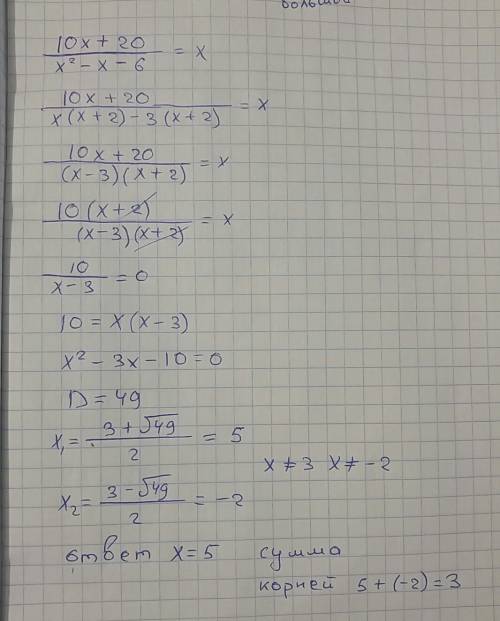 большой
10x + 20 / x² - x - 6 = x
10x + 20 / x(x+2) - 3(x+2) = x
10x + 20 / (x-3)(x+2) = x
10(x+2) / (x-3)(x+2) = x
10 / x-3 = 0
10 = x(x-3)
x² - 3x - 10 = 0
D = 49
x₁ = 3 + √49 / 2 = 5
x ≠ 3 x ≠ -2
x₂ = 3 - √49 / 2 = -2
ответ x = 5
сумма
корней 5 + (-2) = 3